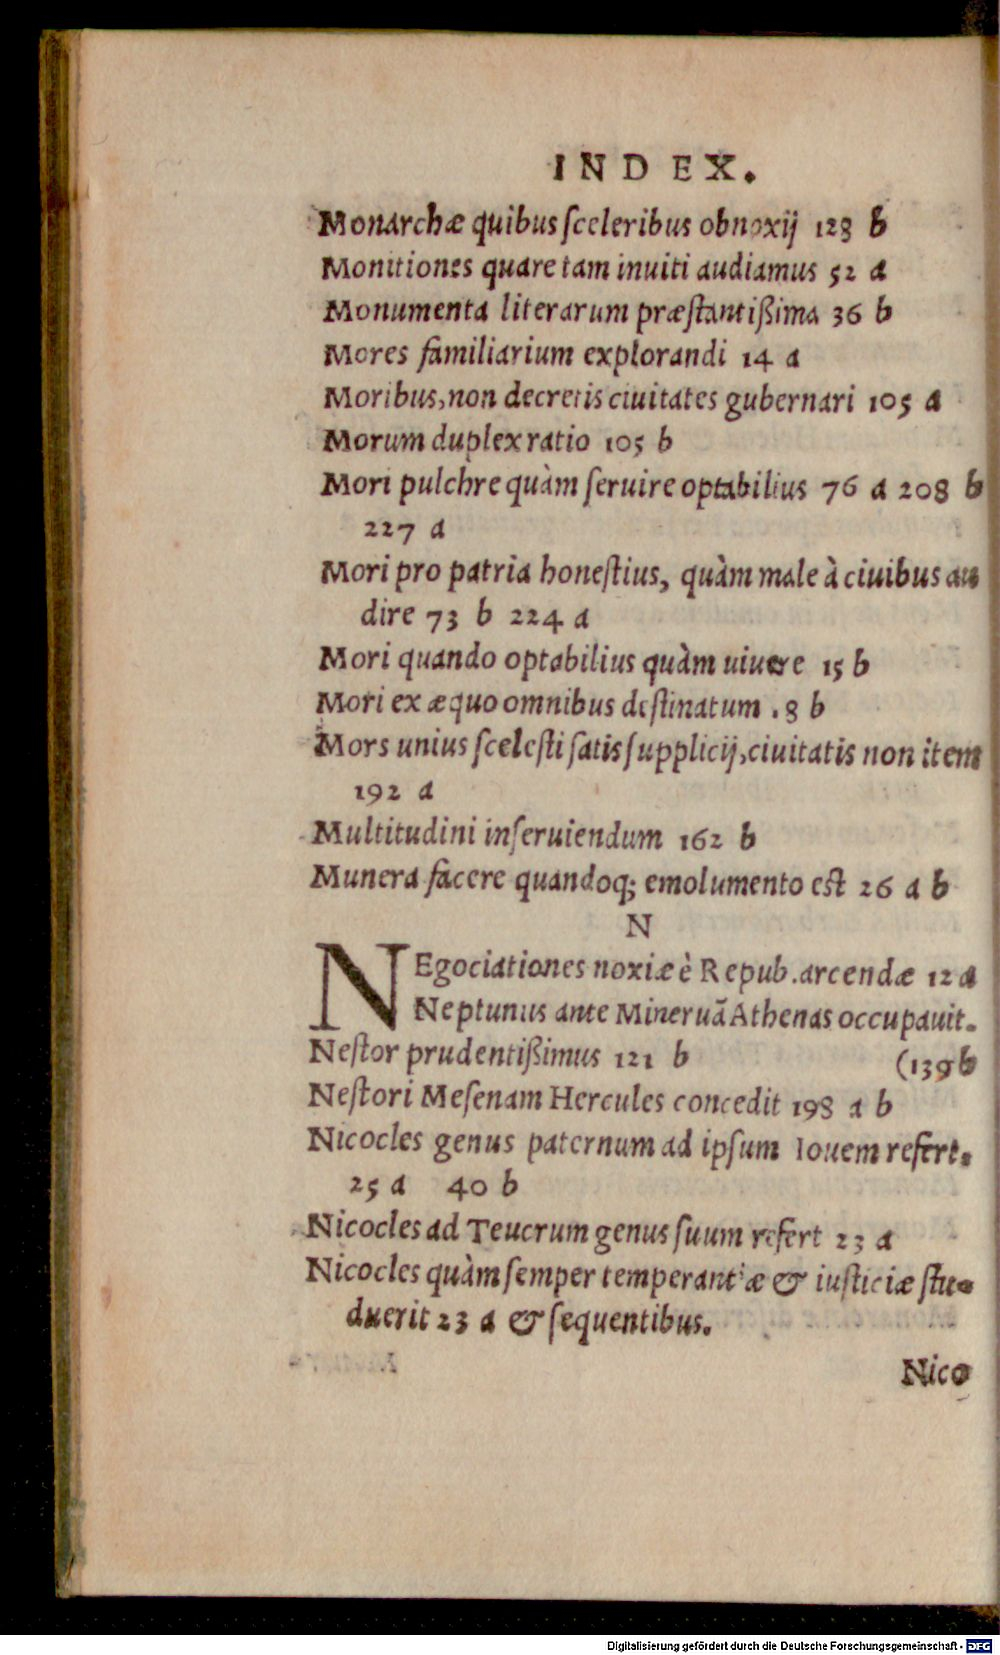 INDEX.
Monarchæ quibus ſceleribus obnoxij 128 b
Monitiones quare tam inuiti audiamus 52 a
Monumenta literarum præſtantißima 36 b
Mores familiarium explorandi 14 a
Moribus, non decretis ciuitates gubernari 105 a
Morum duplex ratio 105 b
Mori pulchre quàm ſeruire optabilius 76 a 208 b
227 a
Mori pro patria honeſtius, quàm male à ciuibus au
dire 73 b 224 a
Mori quando optabilius quàm uiuere 15 b
Mori ex æquo omnibus deſtinatum . 8 b
Mors unius ſceleſti ſatis ſupplicij, ciuitatis non item
192 a
Multitudini inſeruiendum 162 b
Munera facere quandoq; emolumento eſt 26 a b
N
NEgociationes noxiæ è Repub. arcendæ 12 a
Neptunus ante Mineruã Athenas occupauit.
Neſtor prudentißimus 121 b (139 b
Neſtori Meſenam Hercules concedit 198 a b
Nicocles genus paternum ad ipſum Iouem refert.
25 a 40 b
Nicocles ad Teucrum genus ſuum refert 23 a
Nicocles quàm ſemper temperantiæ & iuſticiæ ſtu-
duerit 23 a & ſequentibus.
Nico
Digitalisierung gefördert durch die Deutsche Forschungsgemeinschaft - DFG